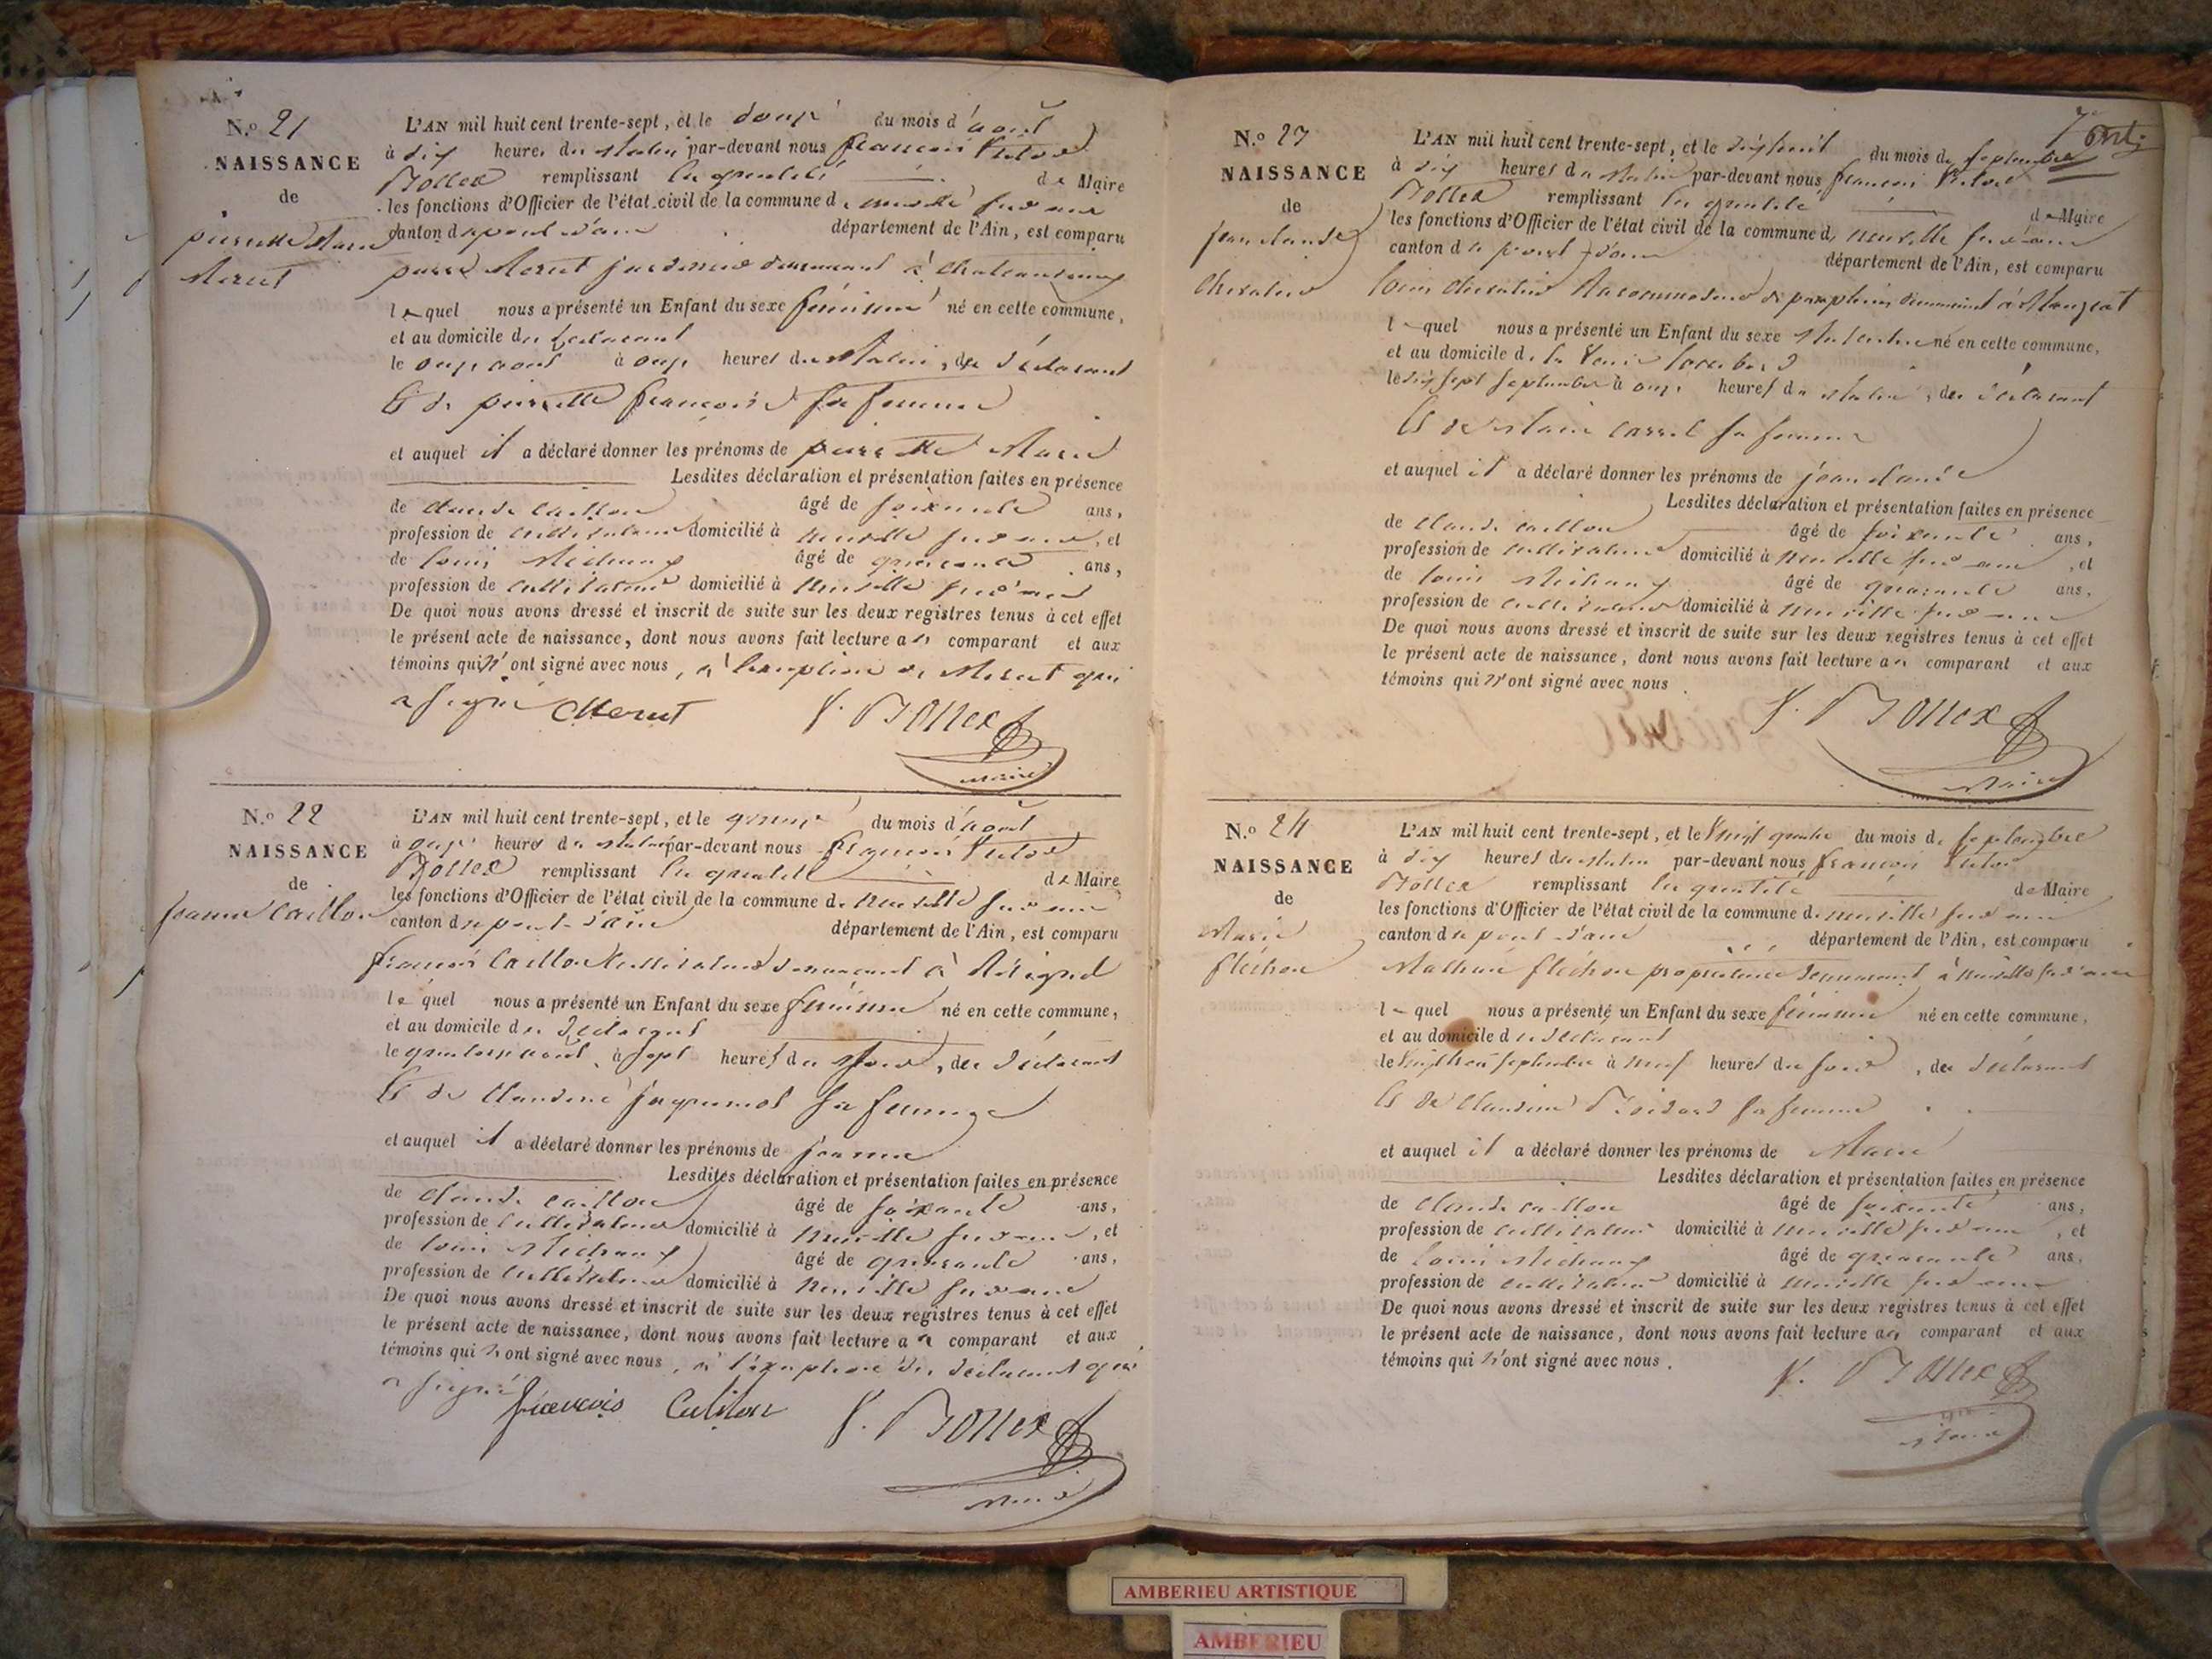 N.º 21
NAISSANCE
de
pierrette Marie
Merut
L'AN mil huit cent trente-sept, et le douze du mois d'août
à dix heures du matin par-devant nous françois Victor
Bollex remplissant les de Maire
les fonctions d'Officier de l'état civil de la commune de neuville sur ain
canton de pont d'ain département de l'Ain, est comparu
pierre Merut demeurant à
lequel nous a présenté un Enfant du sexe féminin né en cette commune,
et au domicile du déclarant
le onze août à onze heures du matin, du déclarant
Et de pierrette françoise sa femme
et auquel il a déclaré donner les prénoms de pierrette Marie
Lesdites déclaration et présentation faites en présence
de claude caillon âgé de soixante ans,
profession de cultivateur domicilié à neuville sur ain, et
de louis Michaux âgé de quarante ans,
profession de cultivateur domicilié à neuville sur ain
De quoi nous avons dressé et inscrit de suite sur les deux registres tenus à cet effet
le présent acte de naissance, dont nous avons fait lecture au comparant et aux
témoins qui n'ont signé avec nous, à l'exception de Merut qui
a signé Merut V. Bollex
maire
N.º 22
NAISSANCE
de
jeanne Caillon
L'AN mil huit cent trente-sept, et le quinze du mois d'août
à onze heures du matin par-devant nous françois Victor
Bollex remplissant les de Maire
les fonctions d'Officier de l'état civil de la commune de neuville sur ain
canton de pont d'ain département de l'Ain, est comparu
françois Caillon cultivateur demeurant à
lequel nous a présenté un Enfant du sexe féminin né en cette commune,
et au domicile du déclarant
le quatorze août à sept heures du soir, du déclarant
Et de Claudine sa femme
et auquel il a déclaré donner les prénoms de jeanne
Lesdites déclaration et présentation faites en présence
de claude caillon âgé de soixante ans,
profession de cultivateur domicilié à neuville sur ain, et
de louis Michaux âgé de quarante ans,
profession de cultivateur domicilié à neuville sur ain
De quoi nous avons dressé et inscrit de suite sur les deux registres tenus à cet effet
le présent acte de naissance, dont nous avons fait lecture au comparant et aux
témoins qui n'ont signé avec nous, à l'exception du déclarant qui
a signé françois Caillon V. Bollex
maire
N.º 23
NAISSANCE
de
jean claude
Chevalier
L'AN mil huit cent trente-sept, et le dix huit du mois de septembre
à dix heures du matin par-devant nous françois Victor
Bollex remplissant les de Maire
les fonctions d'Officier de l'état civil de la commune de neuville sur ain
canton de pont d'ain département de l'Ain, est comparu
louis chevalier Racommodeur de parapluies demeurant à
lequel nous a présenté un Enfant du sexe Masculin né en cette commune,
et au domicile de la
le dix sept septembre à onze heures du matin, du déclarant
Et de Marie sa femme
et auquel il a déclaré donner les prénoms de jean claude
Lesdites déclaration et présentation faites en présence
de claude caillon âgé de soixante ans,
profession de cultivateur domicilié à neuville sur ain, et
de louis Michaux âgé de quarante ans,
profession de cultivateur domicilié à neuville sur ain
De quoi nous avons dressé et inscrit de suite sur les deux registres tenus à cet effet
le présent acte de naissance, dont nous avons fait lecture au comparant et aux
témoins qui n'ont signé avec nous.
V. Bollex
Maire
N.º 24
NAISSANCE
de
Marie
fléchon
L'AN mil huit cent trente-sept, et le vingt quatre du mois de septembre
à dix heures du matin par-devant nous françois Victor
Bollex remplissant les de Maire
les fonctions d'Officier de l'état civil de la commune de neuville sur ain
canton de pont d'ain département de l'Ain, est comparu
fléchon propriétaire demeurant à neuville sur ain
lequel nous a présenté un Enfant du sexe féminin né en cette commune,
et au domicile du déclarant
le vingt trois septembre à neuf heures du soir, du déclarant
Et de claudine sa femme
et auquel il a déclaré donner les prénoms de Marie
Lesdites déclaration et présentation faites en présence
de claude caillon âgé de soixante ans,
profession de cultivateur domicilié à neuville sur ain, et
de louis Michaux âgé de quarante ans,
profession de cultivateur domicilié à neuville sur ain
De quoi nous avons dressé et inscrit de suite sur les deux registres tenus à cet effet
le présent acte de naissance, dont nous avons fait lecture au comparant et aux
témoins qui n'ont signé avec nous.
V. Bollex
maire
AMBERIEU ARTISTIQUE
AMBERIEU